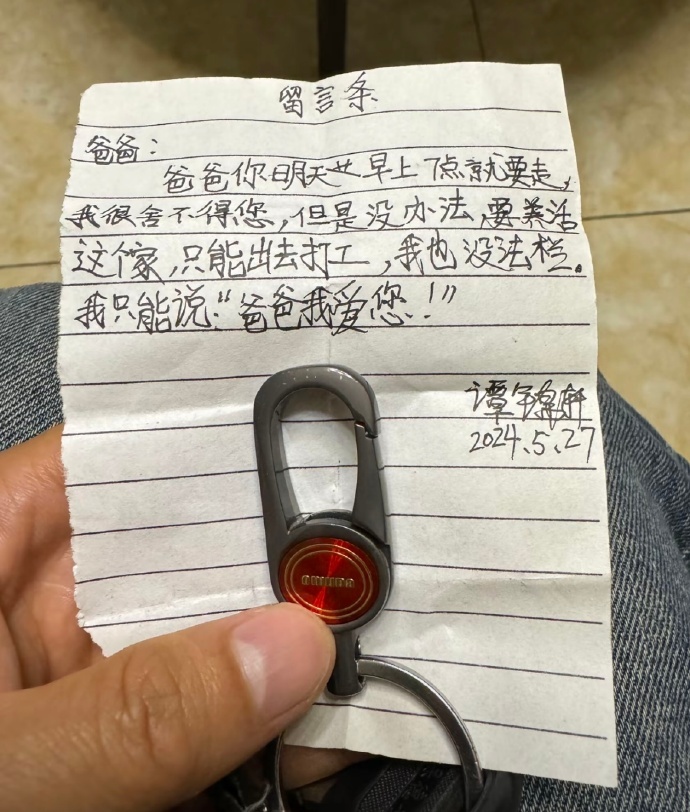 留言条
爸爸：
爸爸你明天早上7点就要走，
我很舍不得您，但是没办法，要养活
这个家，只能出去打工，我也没法栏。
我只能说：“爸爸我爱您！”
谭
轩
2024.5.27